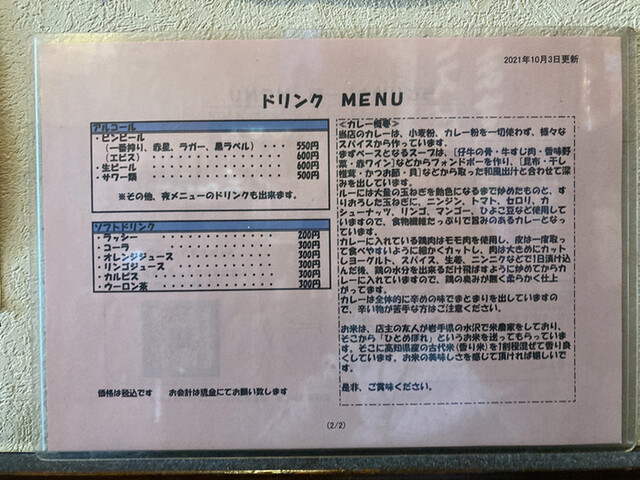 2021年10月3日更新
ドリンク MENU
アルコール
・ビンビール
(一番搾り、赤星、ラガー、黒ラベル)・・・ 550円
(エビス)・・・・・・・・・・・・ 600円
・生ビール ・・・・・・・・・・・・ 600円
・サワー類 ・・・・・・・・・・・・ 500円
※その他、夜メニューのドリンクも出来ます。
ソフトドリンク
・ラッシー ・・・・・・・・・・・・ 200円
・コーラ ・・・・・・・・・・・・ 300円
・オレンジジュース ・・・・・・・・・・・・ 300円
・リンゴジュース ・・・・・・・・・・・・ 300円
・カルピス ・・・・・・・・・・・・ 300円
・ウーロン茶 ・・・・・・・・・・・・ 300円
価格は税込です お会計は現金にてお願い致します
<カレー概要>
当店のカレーは、小麦粉、カレー粉を一切使わず、様々な
スパイスから作っています。
まずベースとなるスープは、[仔牛の骨・牛すじ肉・香味野
菜・赤ワイン]などからフォンドボーを作り、[昆布・干し
椎茸・かつお節・貝]などから取った和風出汁と合わせて深
みを出しています。
ルーには大量の玉ねぎを飴色になるまで炒めたものと、す
りおろした玉ねぎに、ニンジン、トマト、セロリ、カ
シューナッツ、リンゴ、マンゴー、ひよこ豆など使用して
いますので、食物繊維たっぷりで旨みのあるカレーとなっ
ています。
カレーに入れている鶏肉はモモ肉を使用し、皮は一度取っ
て食べやすいように細かくカットし、肉は大きめにカット
しヨーグルト、スパイス、生姜、ニンニクなどで1日漬け込
んだ後、鶏の水分を出来るだけ飛ばすように炒めてからカ
レーに入れていますので、鶏の臭みが無く柔らかく仕上
がってます。
カレーは全体的に辛めの味でまとまりを出していますの
で、辛い物が苦手な方はご注意ください。
お米は、店主の友人が岩手県の水沢で米農家をしており、
そこから「ひとめぼれ」というお米を送ってもらっていま
す。そこに高知県産の古代米(香り米)を1割程混ぜて香り良
くしています。お米の美味しさを感じて頂ければ嬉しいで
す。
是非、ご賞味ください。
(2/2)